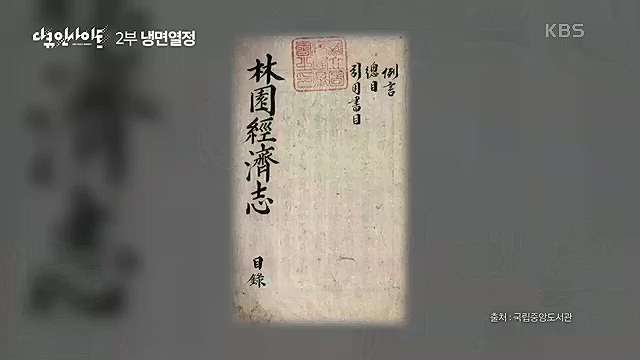 다큐인사이트 2부 냉면열정
KBS
例言
總目
引用書目
林園經濟志
目錄
출처 : 국립중앙도서관